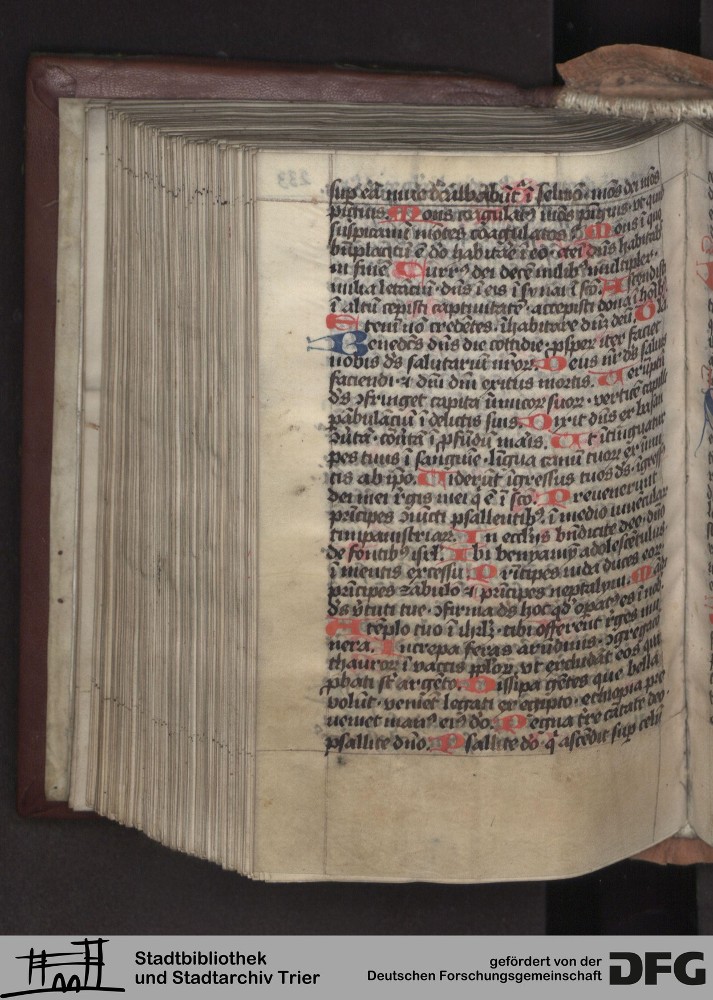 sup eā niue dealbabūt² ī selmō mōs dei mōs
pīguis. Mons coagulat⁹ mōs pīguis ut quid
suspicamī mōtes coagulatos? Mons ī quo
bn̄placitū ē dō habitare ī eo
ī finē. Curr⁹ dei decē milib⁹ multiplex
milia letaciū dn̄s ī eis ī synai ī sc̄o. Ascendisti
ī altū cepisti captiuitatē accepisti dona ī hoīb⁹
Eteni nō credētes īhabitare dn̄m deū
Benedcs dn̄s die cottidie psper iter faciet
nobis ds salutariū nr̄oꝝ. Deus nr̄ ds saluos
faciendi ⁊ dn̄i dn̄i exitus mortis. Uerūptn̄
ds ɔfringet capita īimicoꝝ suoꝝ verticē capilli
pābulāciū ī delictis suis. Dixit dn̄s ex basan
ɔūtā ɔūtā ī pfūdū maīs. Ut ītīguatur
pes tuus ī sanguīe līgua canū tuoꝝ ex īimi
cis ab ipo. Uiderūt īgressus tuos ds īgress⁹
dei mei rꝭgis mei q̄ ē ī sc̄o. Preuenerūt
prīcipes ɔiūcti psallentib⁹ ī medio iuuēculaꝝ
timpanistriaꝝ. In eccliis bn̄dicite deo dn̄o
de fontib⁹ isrl̄. Ibi beniamī adolescētulus
ī mentis excessu. Prīcipes iuda duces eoꝝ
prīcipes zabulō ⁊ prīcipes neptalym. Māda
ds v̄tuti tue ɔfirma ds hoc qd̄ opat⁹ es ī nob̄.
A tēplo tuo ī ihrl̄m tibi offerent rꝭges mu
nera. Increpa feras arūdinis ɔgregacō
thauroꝝ ī vaccis pploꝝ vt excludāt eos qui
pbati st̄ argēto. Dissipa gētes que bella
volūt veniēt legati ex egipto ethiopia pre
ueniet man⁹ ei⁹ dō. Regna tr̄e cātate deo
psallite dn̄o. Psallite dō q̄ ascēdit sup celū
Stadtbibliothek
und Stadtarchiv Trier
gefördert von der
Deutschen Forschungsgemeinschaft
DFG